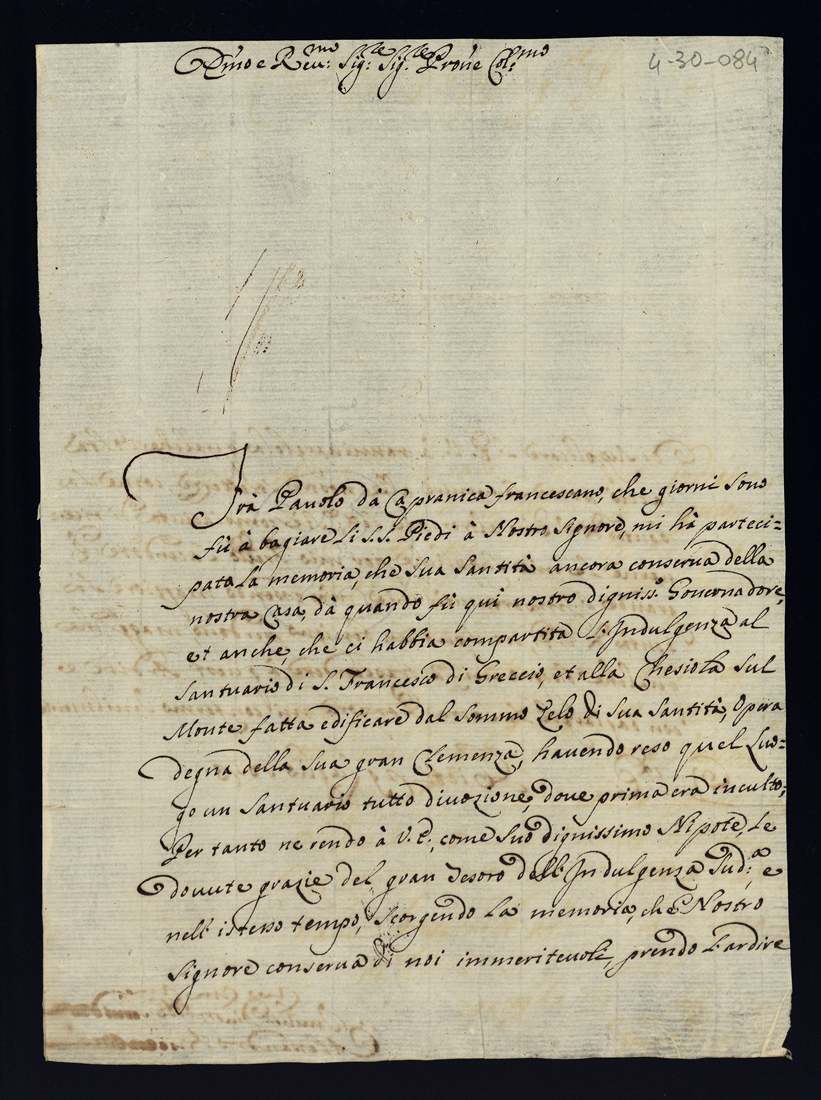 Emo e Reu:mo Sig:re Sig:re Prõne Col:mo
4-30-084
Frà Pauolo dà Capranica francescano, che giorni sono
fù à bagiare li SS. Piedi à Nostro Signore, mi hà parteci=
pata la memoria, che Sua Santità ancora conserua della
nostra Casa, dà quando fù quì nostro digniss:o Gouernadore,
et anche, che ci habbia compartita l'Indulgenza al
Santuario di S. Francesco di Greccio, et alla Chesiola sul
Monte fatta edificare dal sommo zelo di Sua Santità, Opera
degna della sua gran Clemenza, hauendo reso quel Luo=
go un Santuario tutto diuozione, doue prima era inculto;
Per tanto ne rendo à V.E., come suo dignissimo Nipote, le
douute grazie del gran Tesoro dell'Indulgenza sud:a, e
nell'istesso tempo, scorgendo la memoria, che Nostro
Signore conserua di noi immeriteuoli, prendo l'ardire